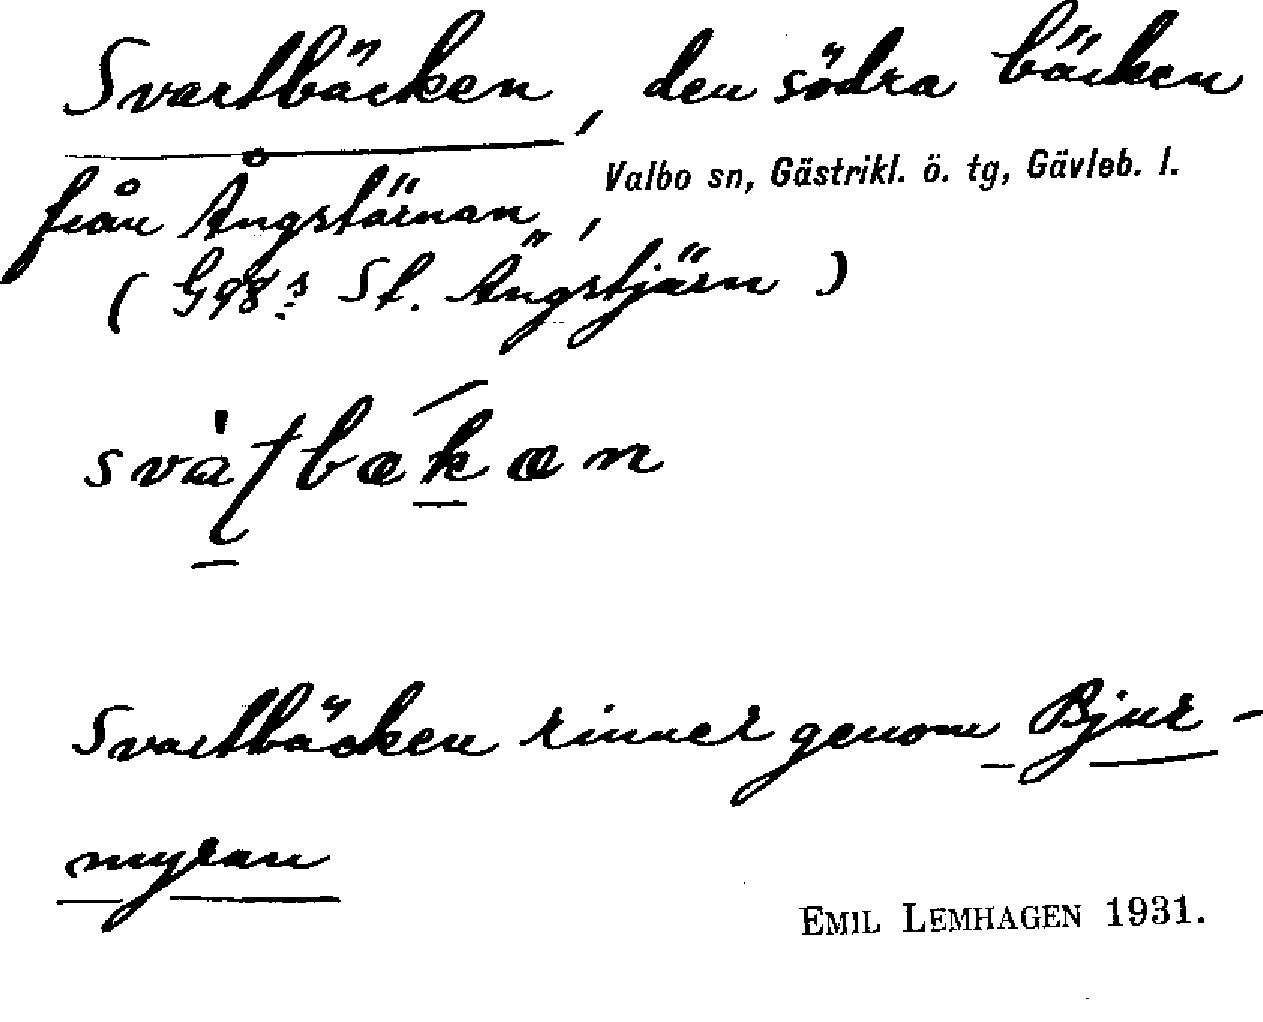 Svartbäcken, den södra bäcken
Valbo sn, Gästrikl. ö. tg, Gävleb. l.
från Ångstärnan,
(G98:s St. Ängstjärn)
svàʈbækæn
Svartbäcken rinner genom Bjur-
myran
EMIL LEMHAGEN 1931.